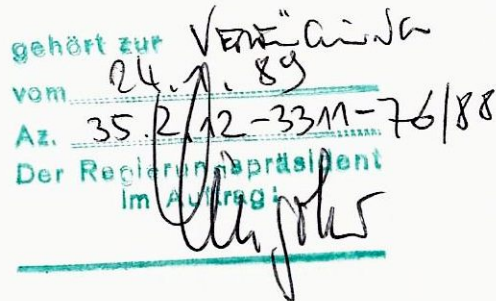 gehört zur Verfügung
vom 24.1.89
Az. 35.2/12-3311-76/88
Der Regierungspräsident
Im Auftrag: